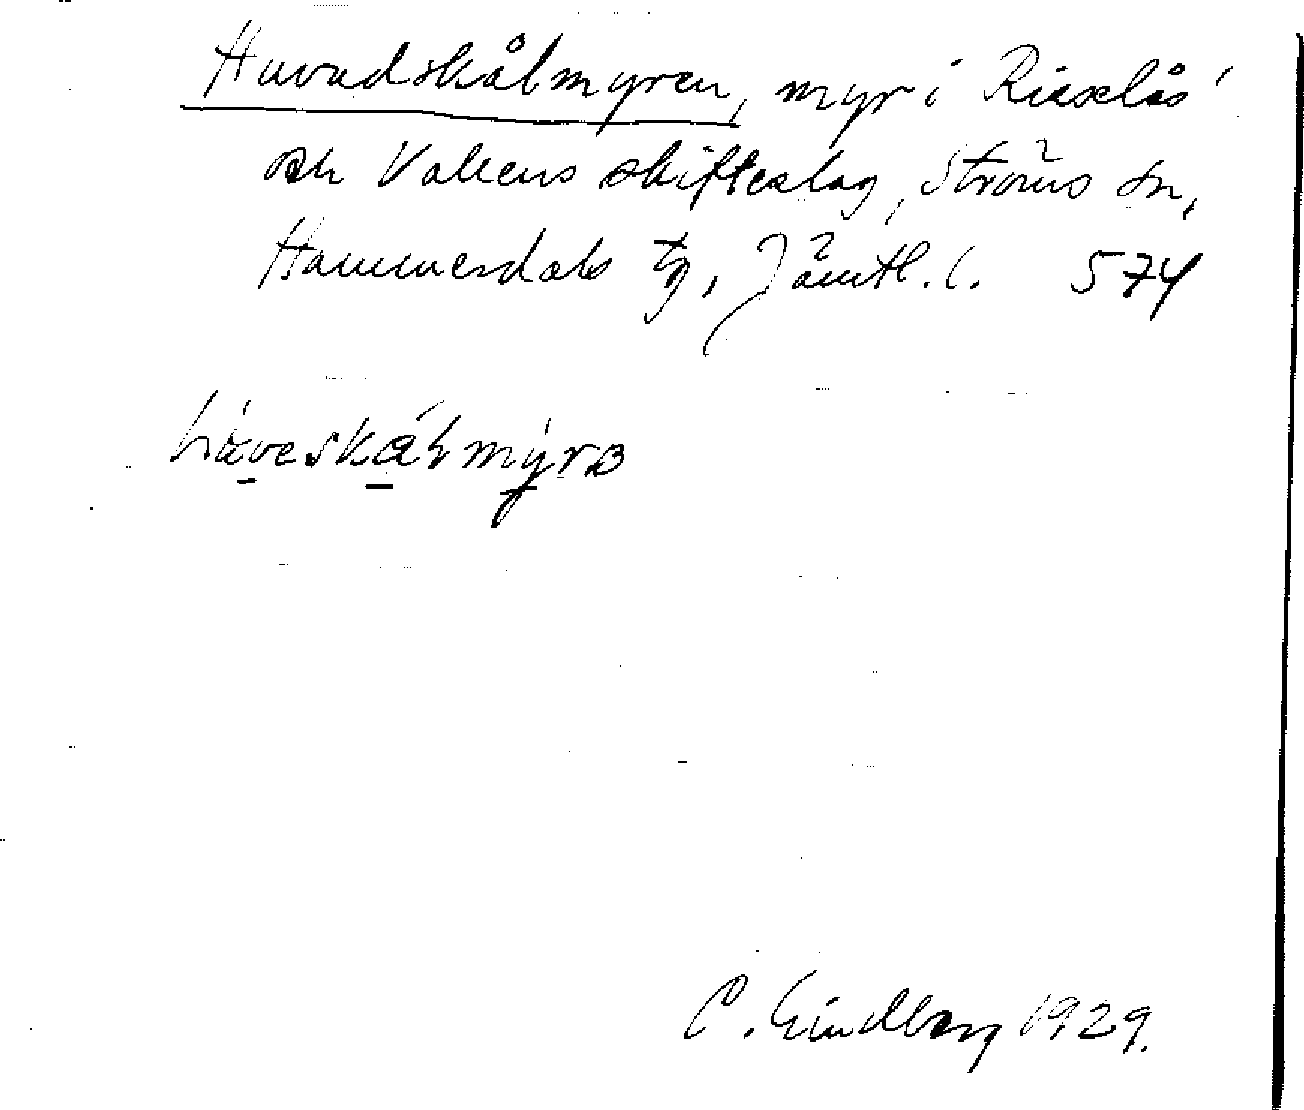 Huvudskålmyren, myr i Risselås
och Vallens skifteslag, Ströms sn,
Hammerdals tg, Jämtl. l. 574
häveskáɫmýra
C. Lindberg 1929.